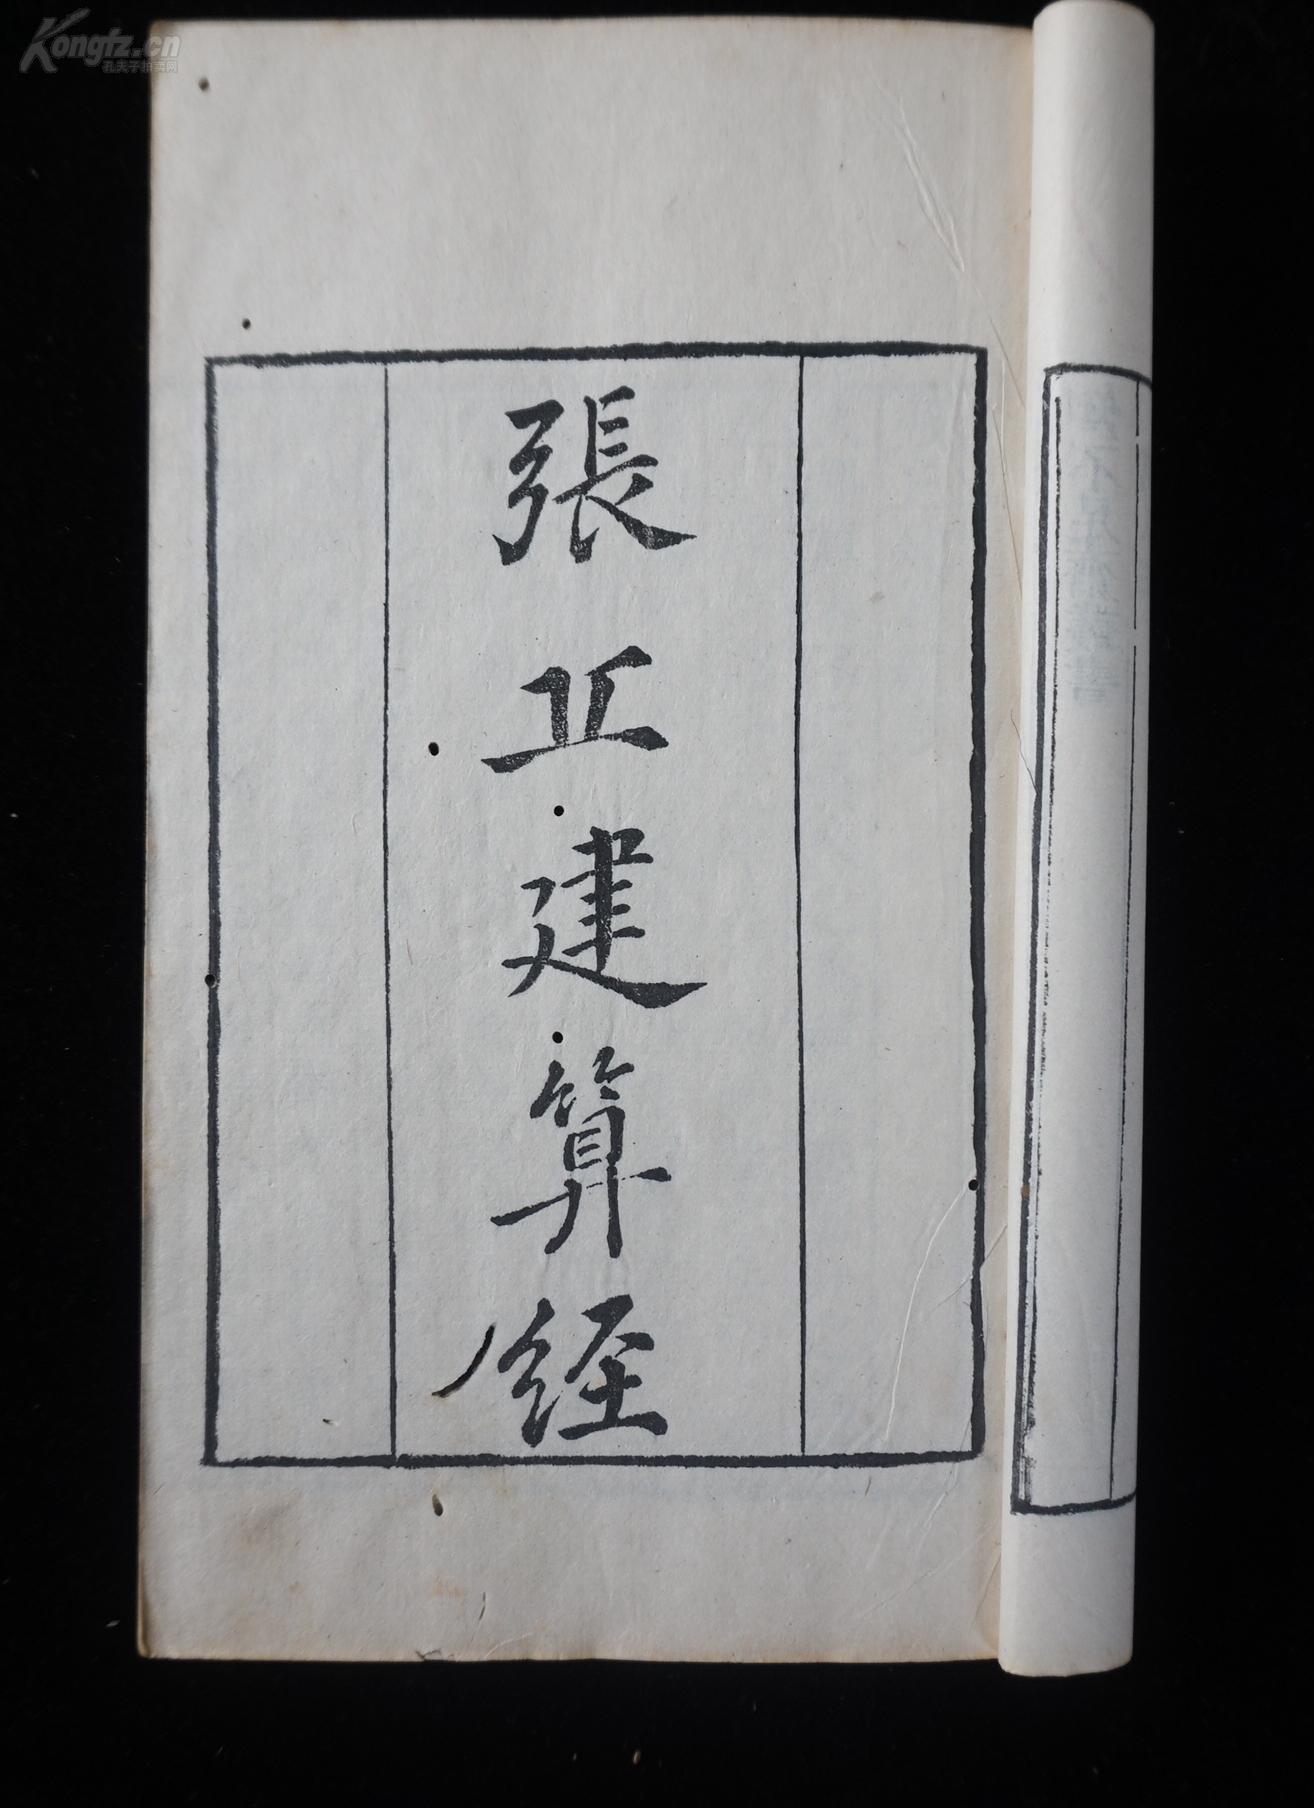 Kongfz.cn
孔夫子拍卖网
張丘建算經